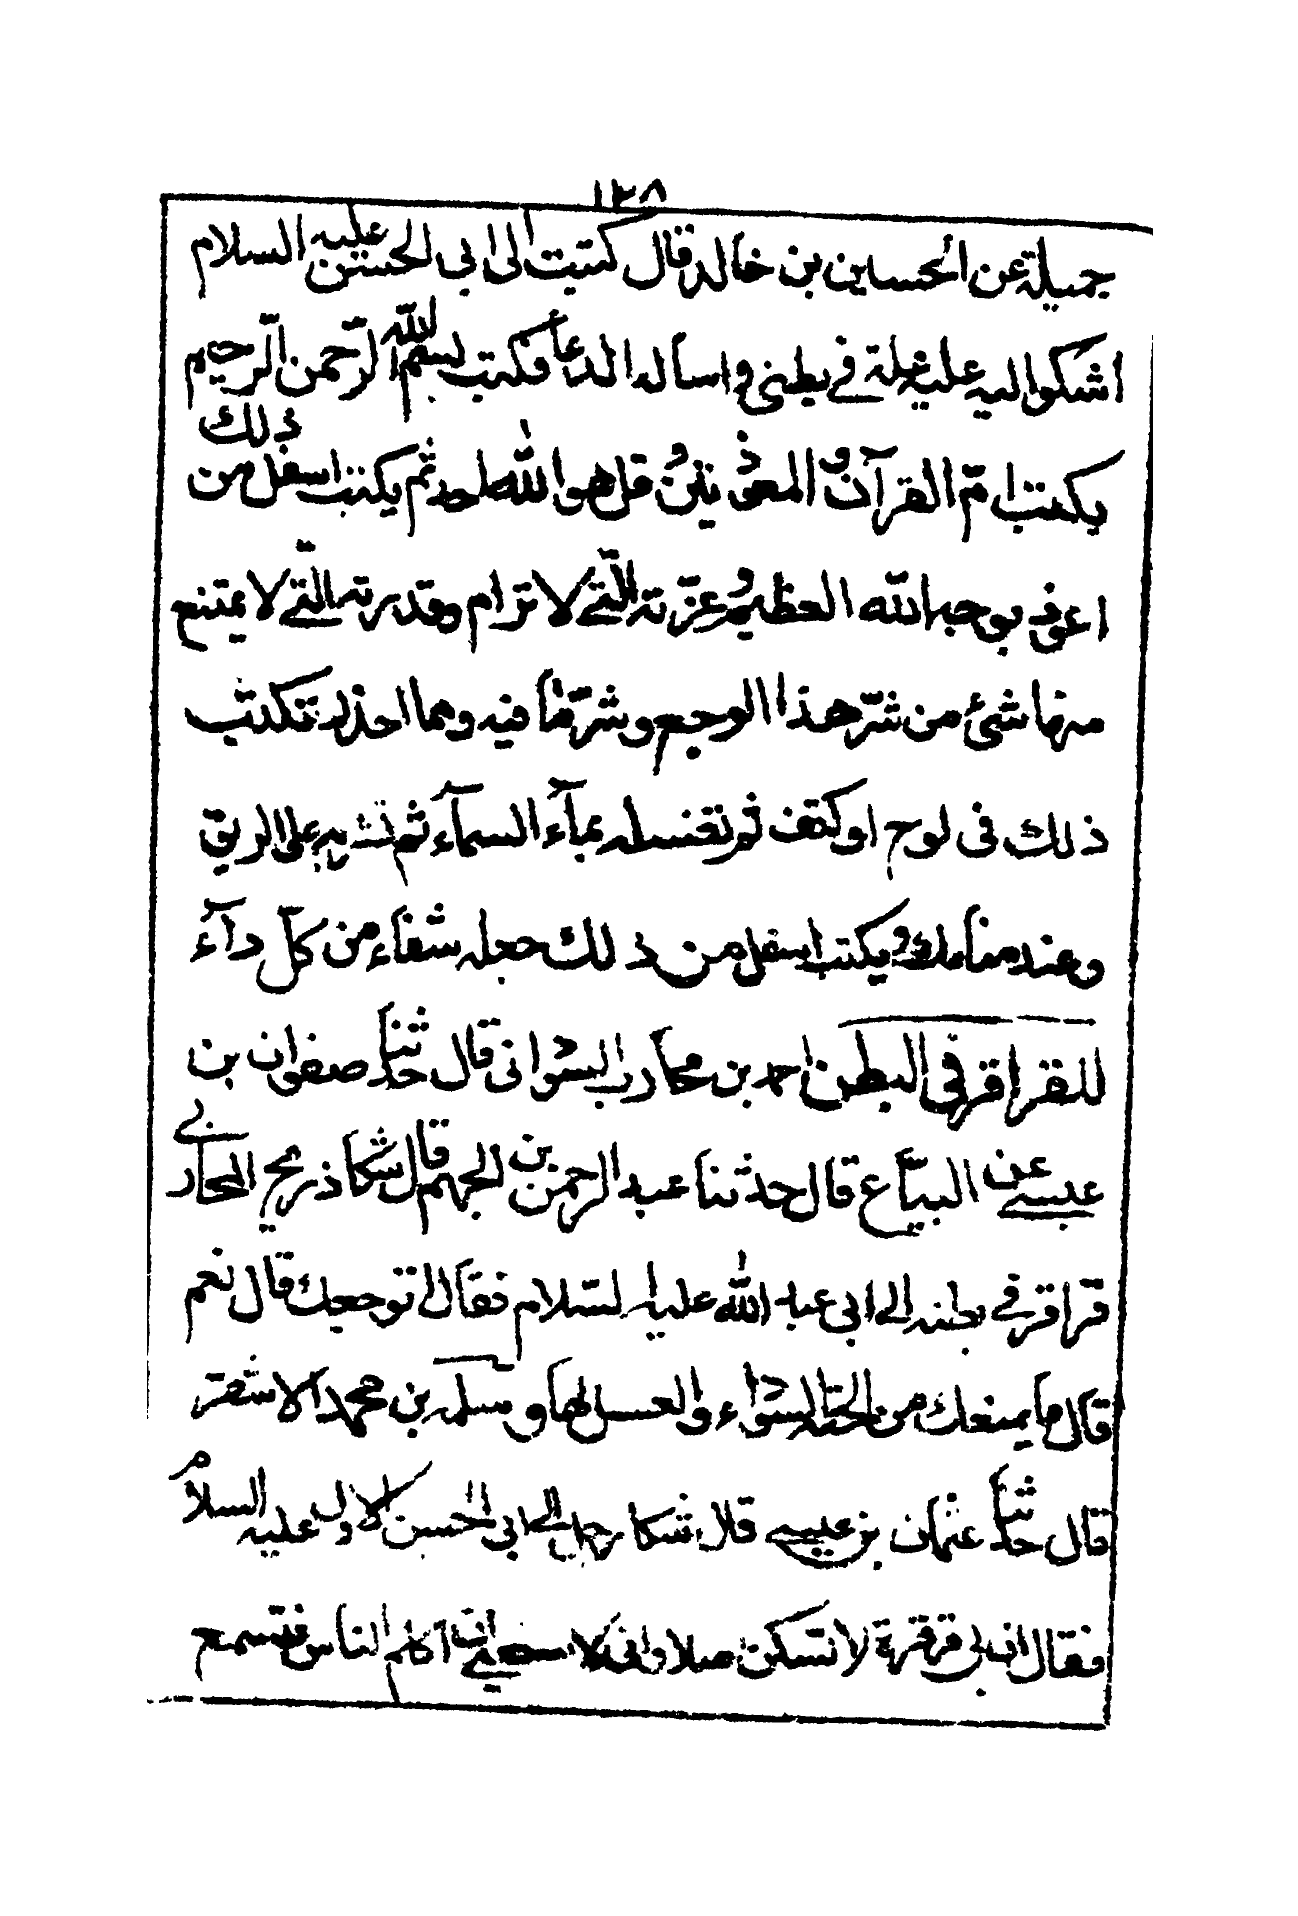 ١٢٨
جميلة عن الحسين بن خالد قال كتبت الى ابى الحسن عليه السلام
اشكوا اليه علة في بطنى و اساله الدعا فكتب بسم الله الرحمن الرحيم
يكتب ام القرآن و المعوذتين و قل هو الله احد ثم يكتب اسفل من ذلك
اعوذ بوجه الله العظيم و عزته التى لا ترام وقدرته التى لا يمتنع
منها شئ من شر هذا الوجع و شر ما فيه و مما احذر تكتب
ذلك فى لوح او كتف ثم تغسله بمآء السمآء ثم تشربه على الريق
وعند منامك و يكتب اسفل من ذلك جعله شفاء من كل دآء
للقراقر في البطن احمد بن محارب السودانى قال حدثنا صفوان بن
عيسى بن البياع قال حدثنا عبد الرحمن بن الجهم قال شكا ذريح المحاربى
قراقر في بطنه الى ابى عبد الله عليه السلام فقال اتوجعك قال نعم
قال ما يمنعك من الحبة السوداء والعسل لها و سلمه بن محمد الاشعرى
قال حدثنا عثمان بن عيسى قال شكا رجل الى ابى الحسن الاول عليه السلام
فقال ان لى قرقرة لا تسكن اصلا وانى لاستحيى ان اكلم الناس فتسمع